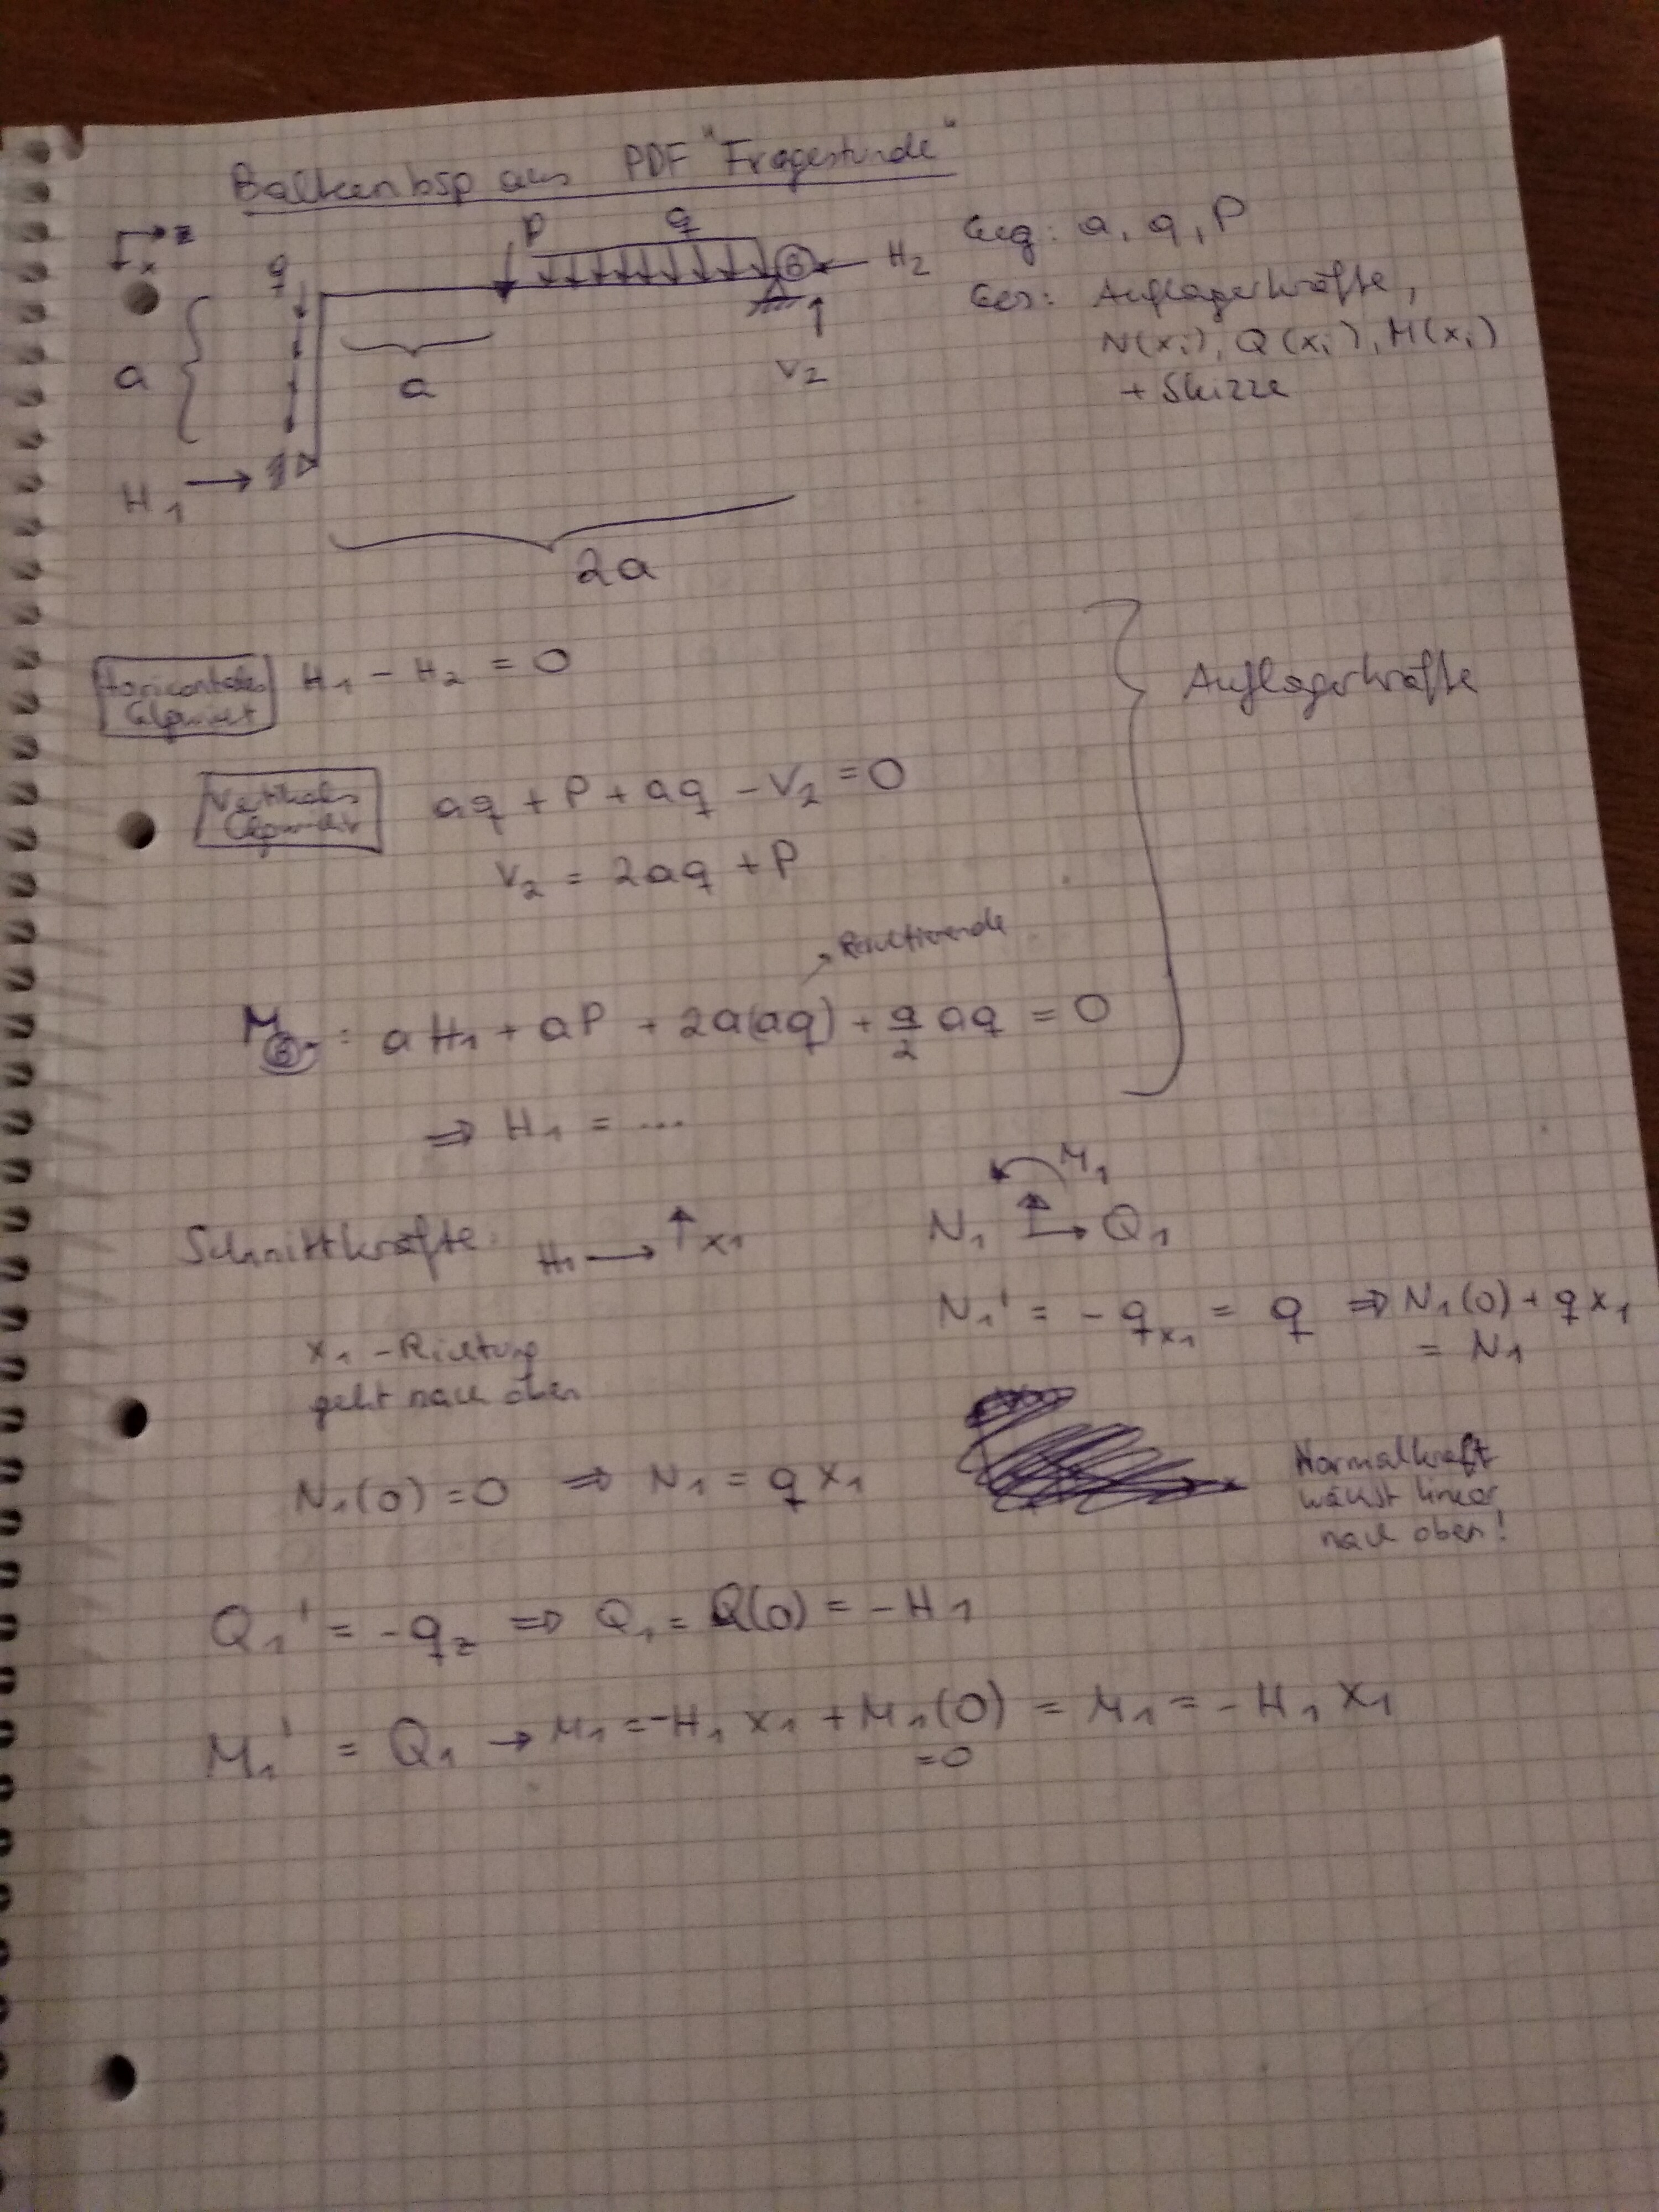 Balkenbsp aus PDF "Fragestunde"
z
x
q
P
q
B
H₂
Geg: a, q, P
Ges: Auflagerkräfte,
N(xᵢ), Q(xᵢ), M(xᵢ)
+ Skizze
a
a
V₂
H₁
2a
Horizontales
H₁ - H₂ = 0
Auflagerkräfte
Vertikales
aq + P + aq - V₂ = 0
V₂ = 2aq + P
Resultierende
M_B : aH₁ + aP + 2a(aq) + a/2 aq = 0
⇒ H₁ = ...
Schnittkräfte: H₁ → ↑ x₁
M₁
N₁ Q₁
N₁' = - qₓ₁ = q ⇒ N₁(0) + qx₁
= N₁
x₁ - Richtung
geht nach oben
N₁(0) = 0 ⇒ N₁ = qx₁
Normalkraft
wächst linear
nach oben!
Q₁' = -q_z ⇒ Q₁ = Q(0) = -H₁
M₁' = Q₁ → M₁ = -H₁x₁ + M₁(0) = M₁ = -H₁x₁
=0